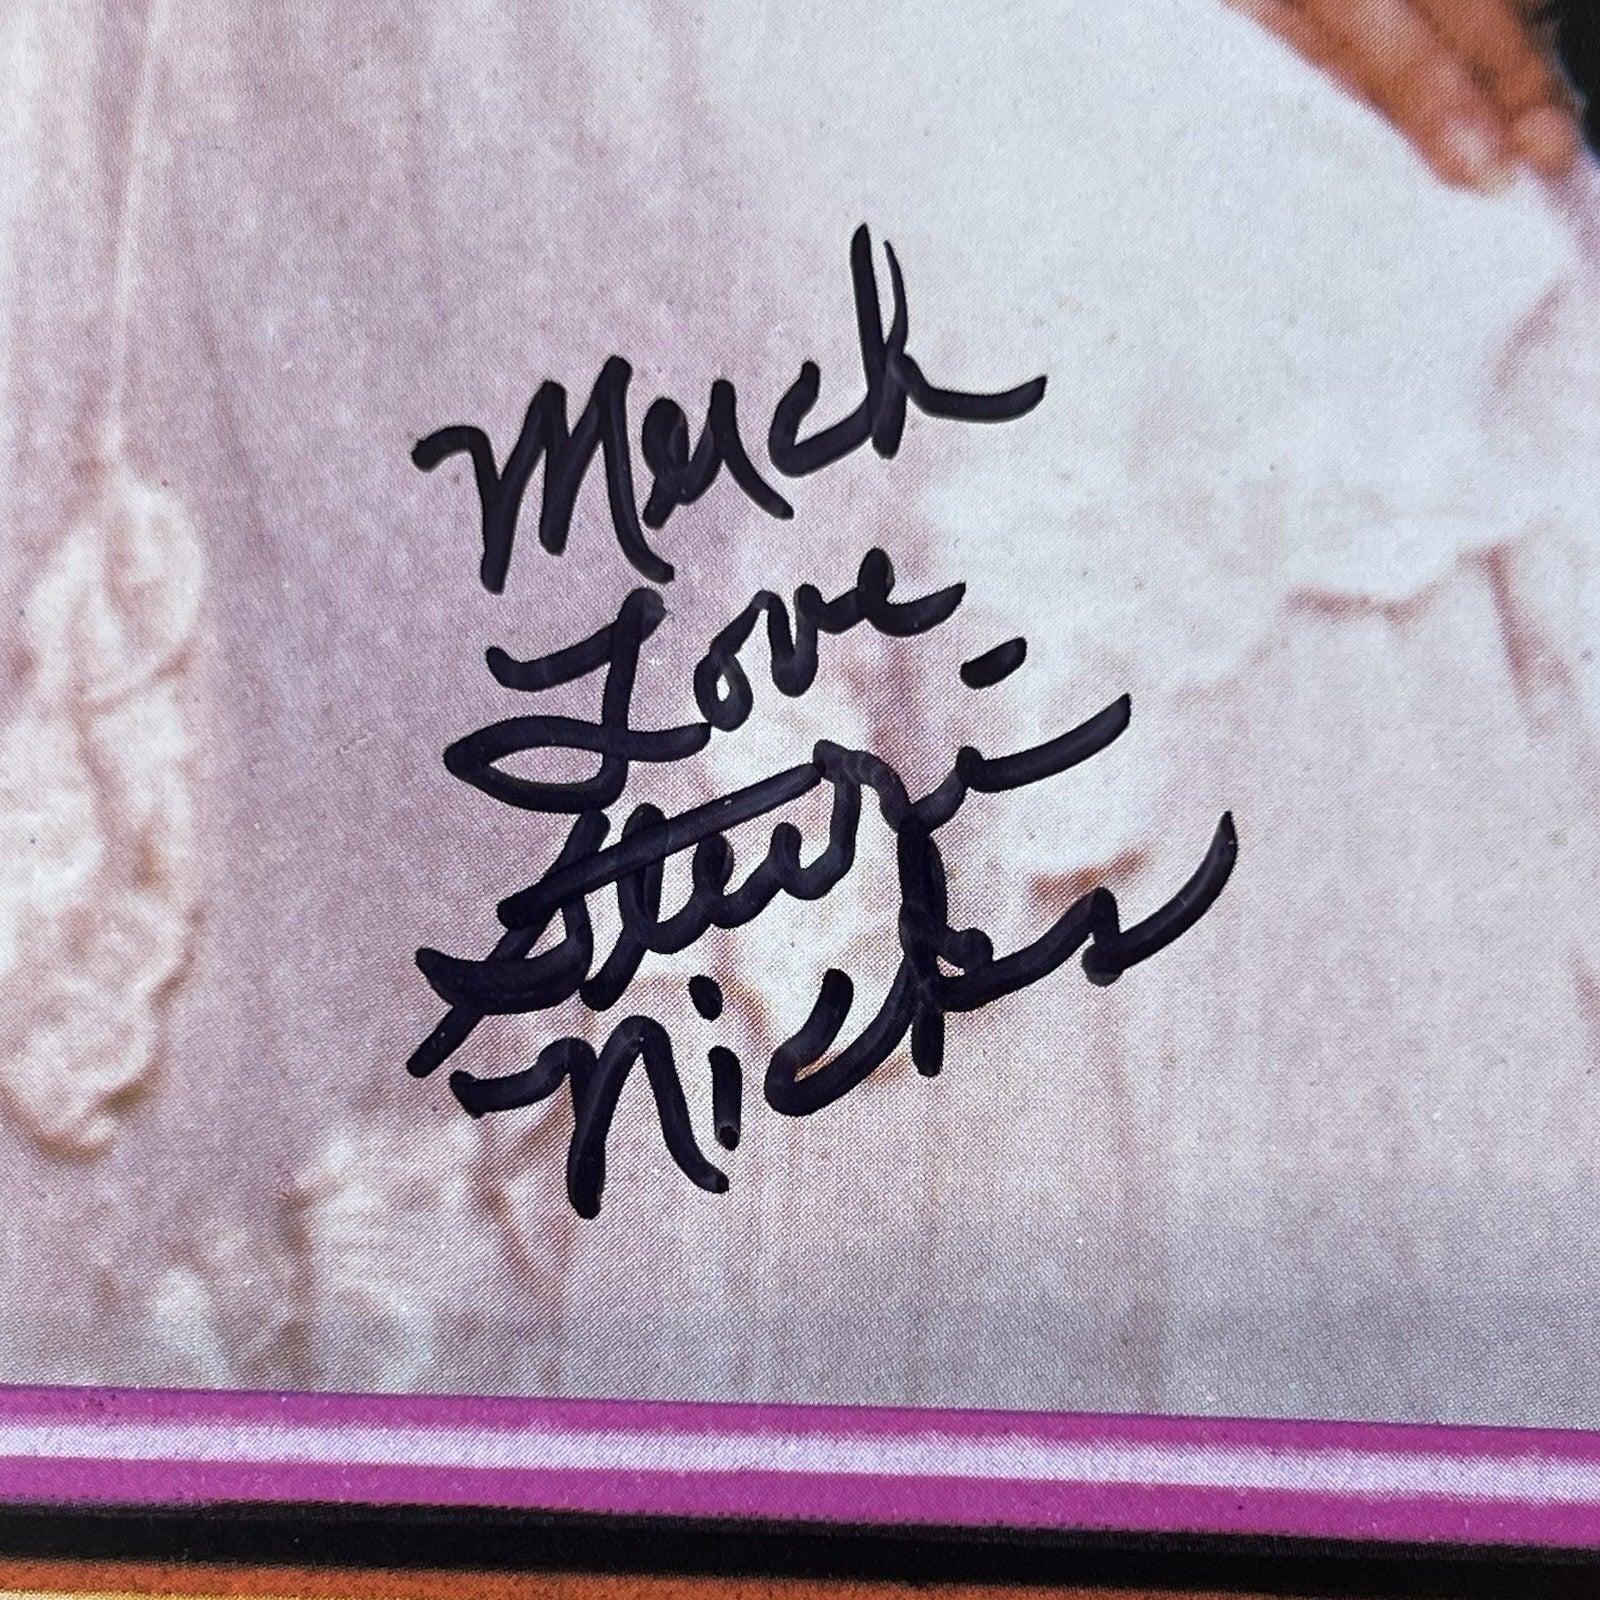 Much
Love
Stevie
Nicks